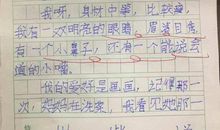 我呀,身材中等,比较瘦,
我有一双明亮的眼睛,眉清目秀,
有一个小鼻子,还有一个能说会
道的小嘴。
我的爱好是画画,记得那一
次,妈妈在洗家,我看见她那一